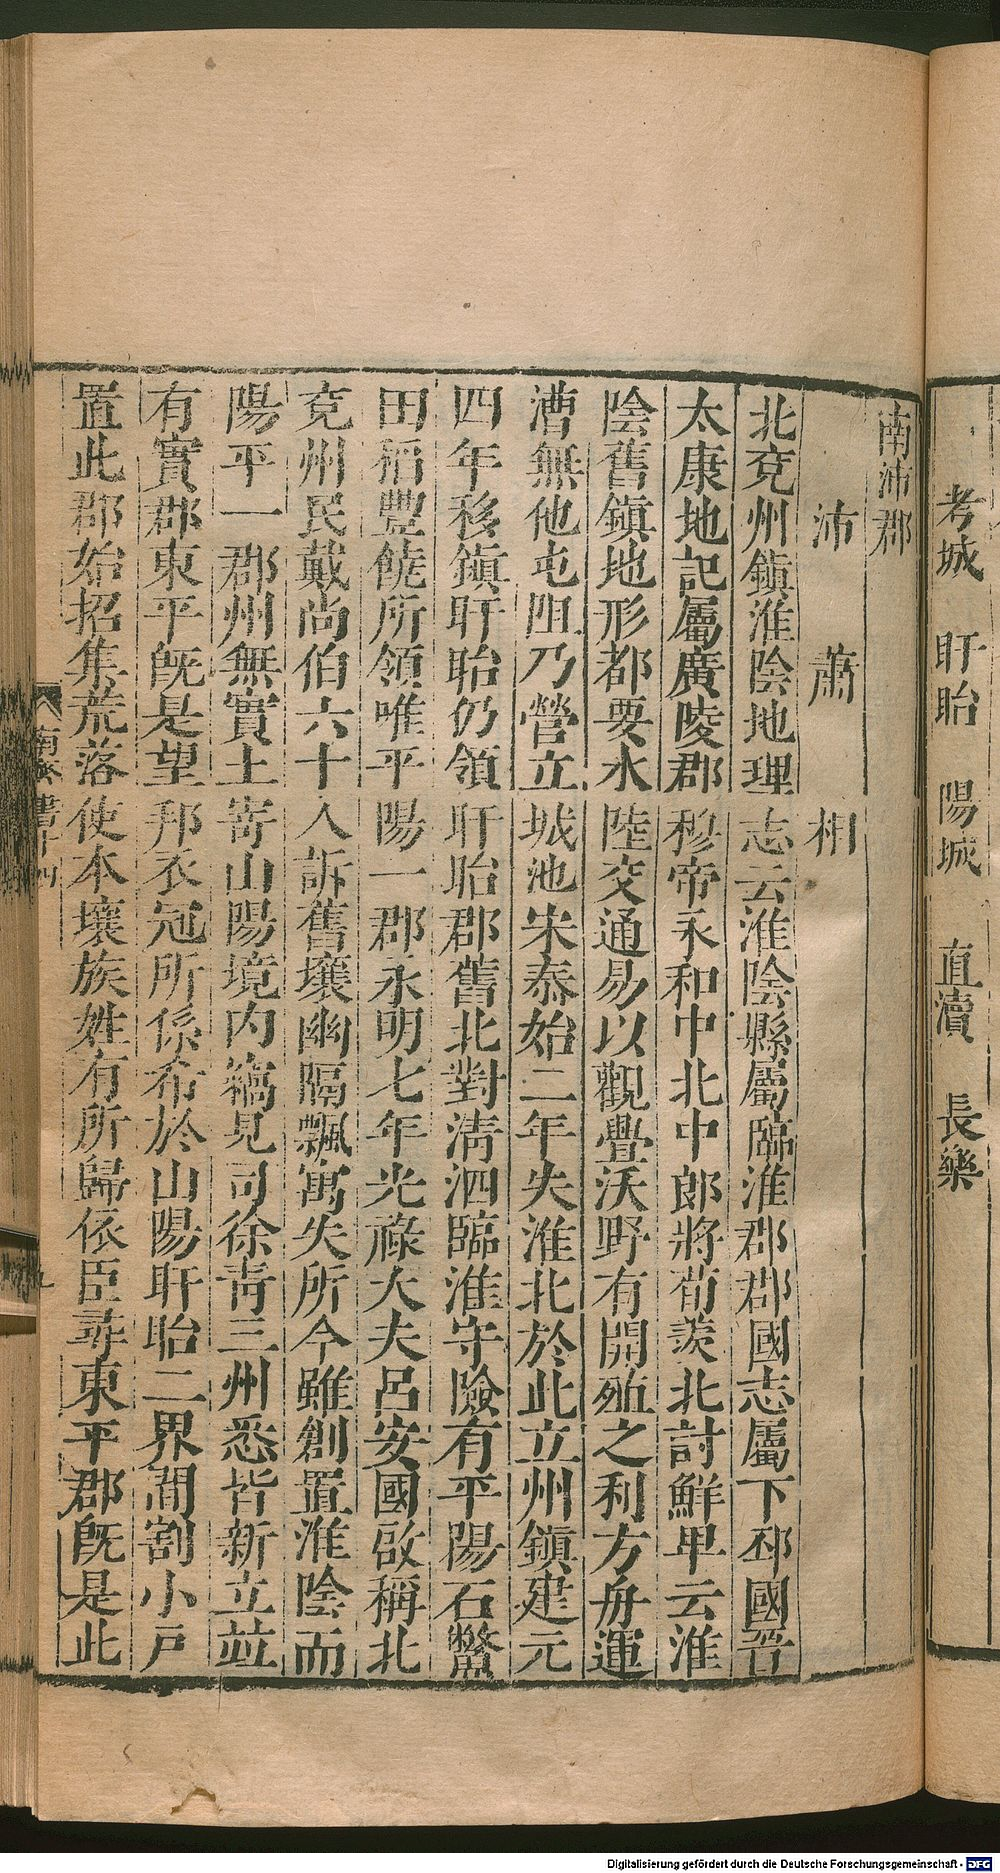 考城　盱眙　陽城　直瀆　長樂
南沛郡
沛　蕭　相
北兗州鎮淮陰地理志云淮陰縣屬臨淮郡郡國志屬下邳國晉
太康地記屬廣陵郡穆帝永和中北中郎將荀羨北討鮮卑云淮
陰舊鎮地形都要水陸交通易以觀舋沃野有開殖之利方舟運
漕無他屯阻乃營立城池宋泰始二年失淮北於此立州鎮建元
四年移鎮盱眙仍領盱眙郡舊北對清泗臨淮守險有平陽石鼈
田稻豐饒所領唯平陽一郡永明七年光祿大夫呂安國啟稱北
兗州民戴尚伯六十人訴舊壤幽隔飄寓失所今雖創置淮陰而
陽平一郡州無實土寄山陽境內竊見司徐青三州悉皆新立並
有實郡東平既是望邦衣冠所係希於山陽盱眙二界間割小戶
置此郡始招集荒落使本壤族姓有所歸依臣尋東平郡既是此
南齊書十四
九
Digitalisierung gefördert durch die Deutsche Forschungsgemeinschaft - DFG